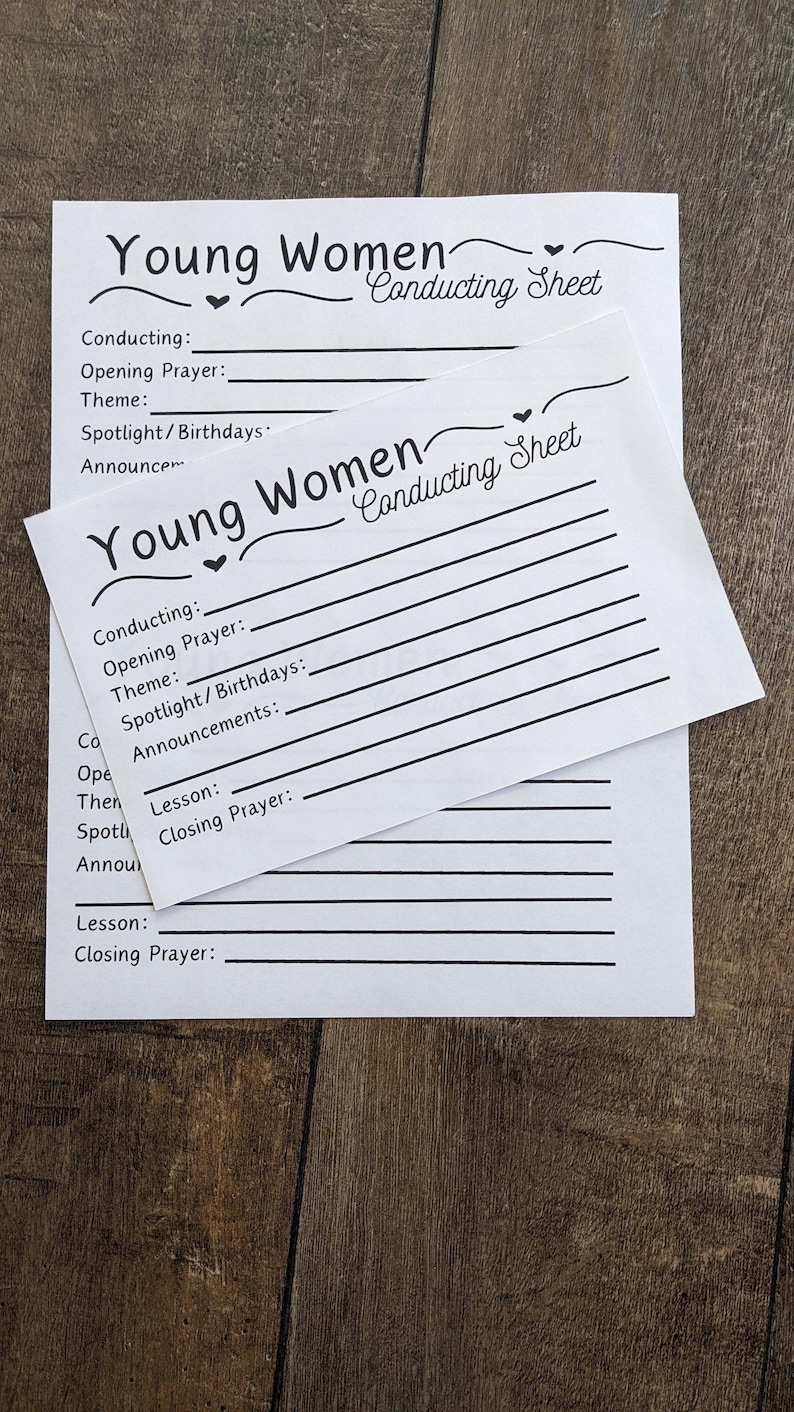 Young Women
Conducting Sheet
Conducting:
Opening Prayer:
Theme:
Spotlight/Birthdays:
Announcem
Young Women
Conducting Sheet
Conducting:
Opening Prayer:
Theme:
Spotlight/Birthdays:
Announcements:
Lesson:
Closing Prayer:
Co
Ope
Them
Spotli
Annou
Lesson:
Closing Prayer: